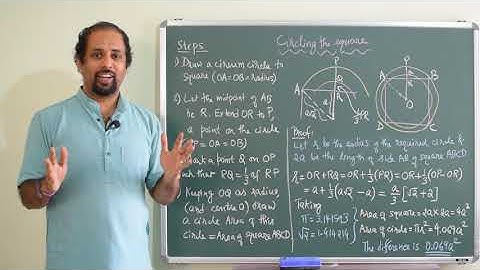 Steps
1) Draw a circum circle to
square (OA=OB=Radius)
2) Let the midpoint of AB
be R. Extend OR to P,
a point on the circle
P = OA = OB)
a point Q on OP
such that PQ=⅓ of RP
4) Keeping OQ as radius
(and centre O) draw
a circle. Area of this
circle = Area of square ABCD
Circling the square
P
Q
R
A
P
A
B
O
D
C
Proof
Let r be the radius of the required circle &
2a be the length of side AB of square ABCD
r = OR + RQ = OR + ⅔(PR) = OR + ⅔(OP-OR)
= a + ⅔(a√2 - a) = a/3 [√2 + 2]
Taking
π = 3.141593
√2 = 1.414214
Area of square = 2a × 2a = 4a²
Area of circle = πr² = 4.069a²
The difference is 0.069a²